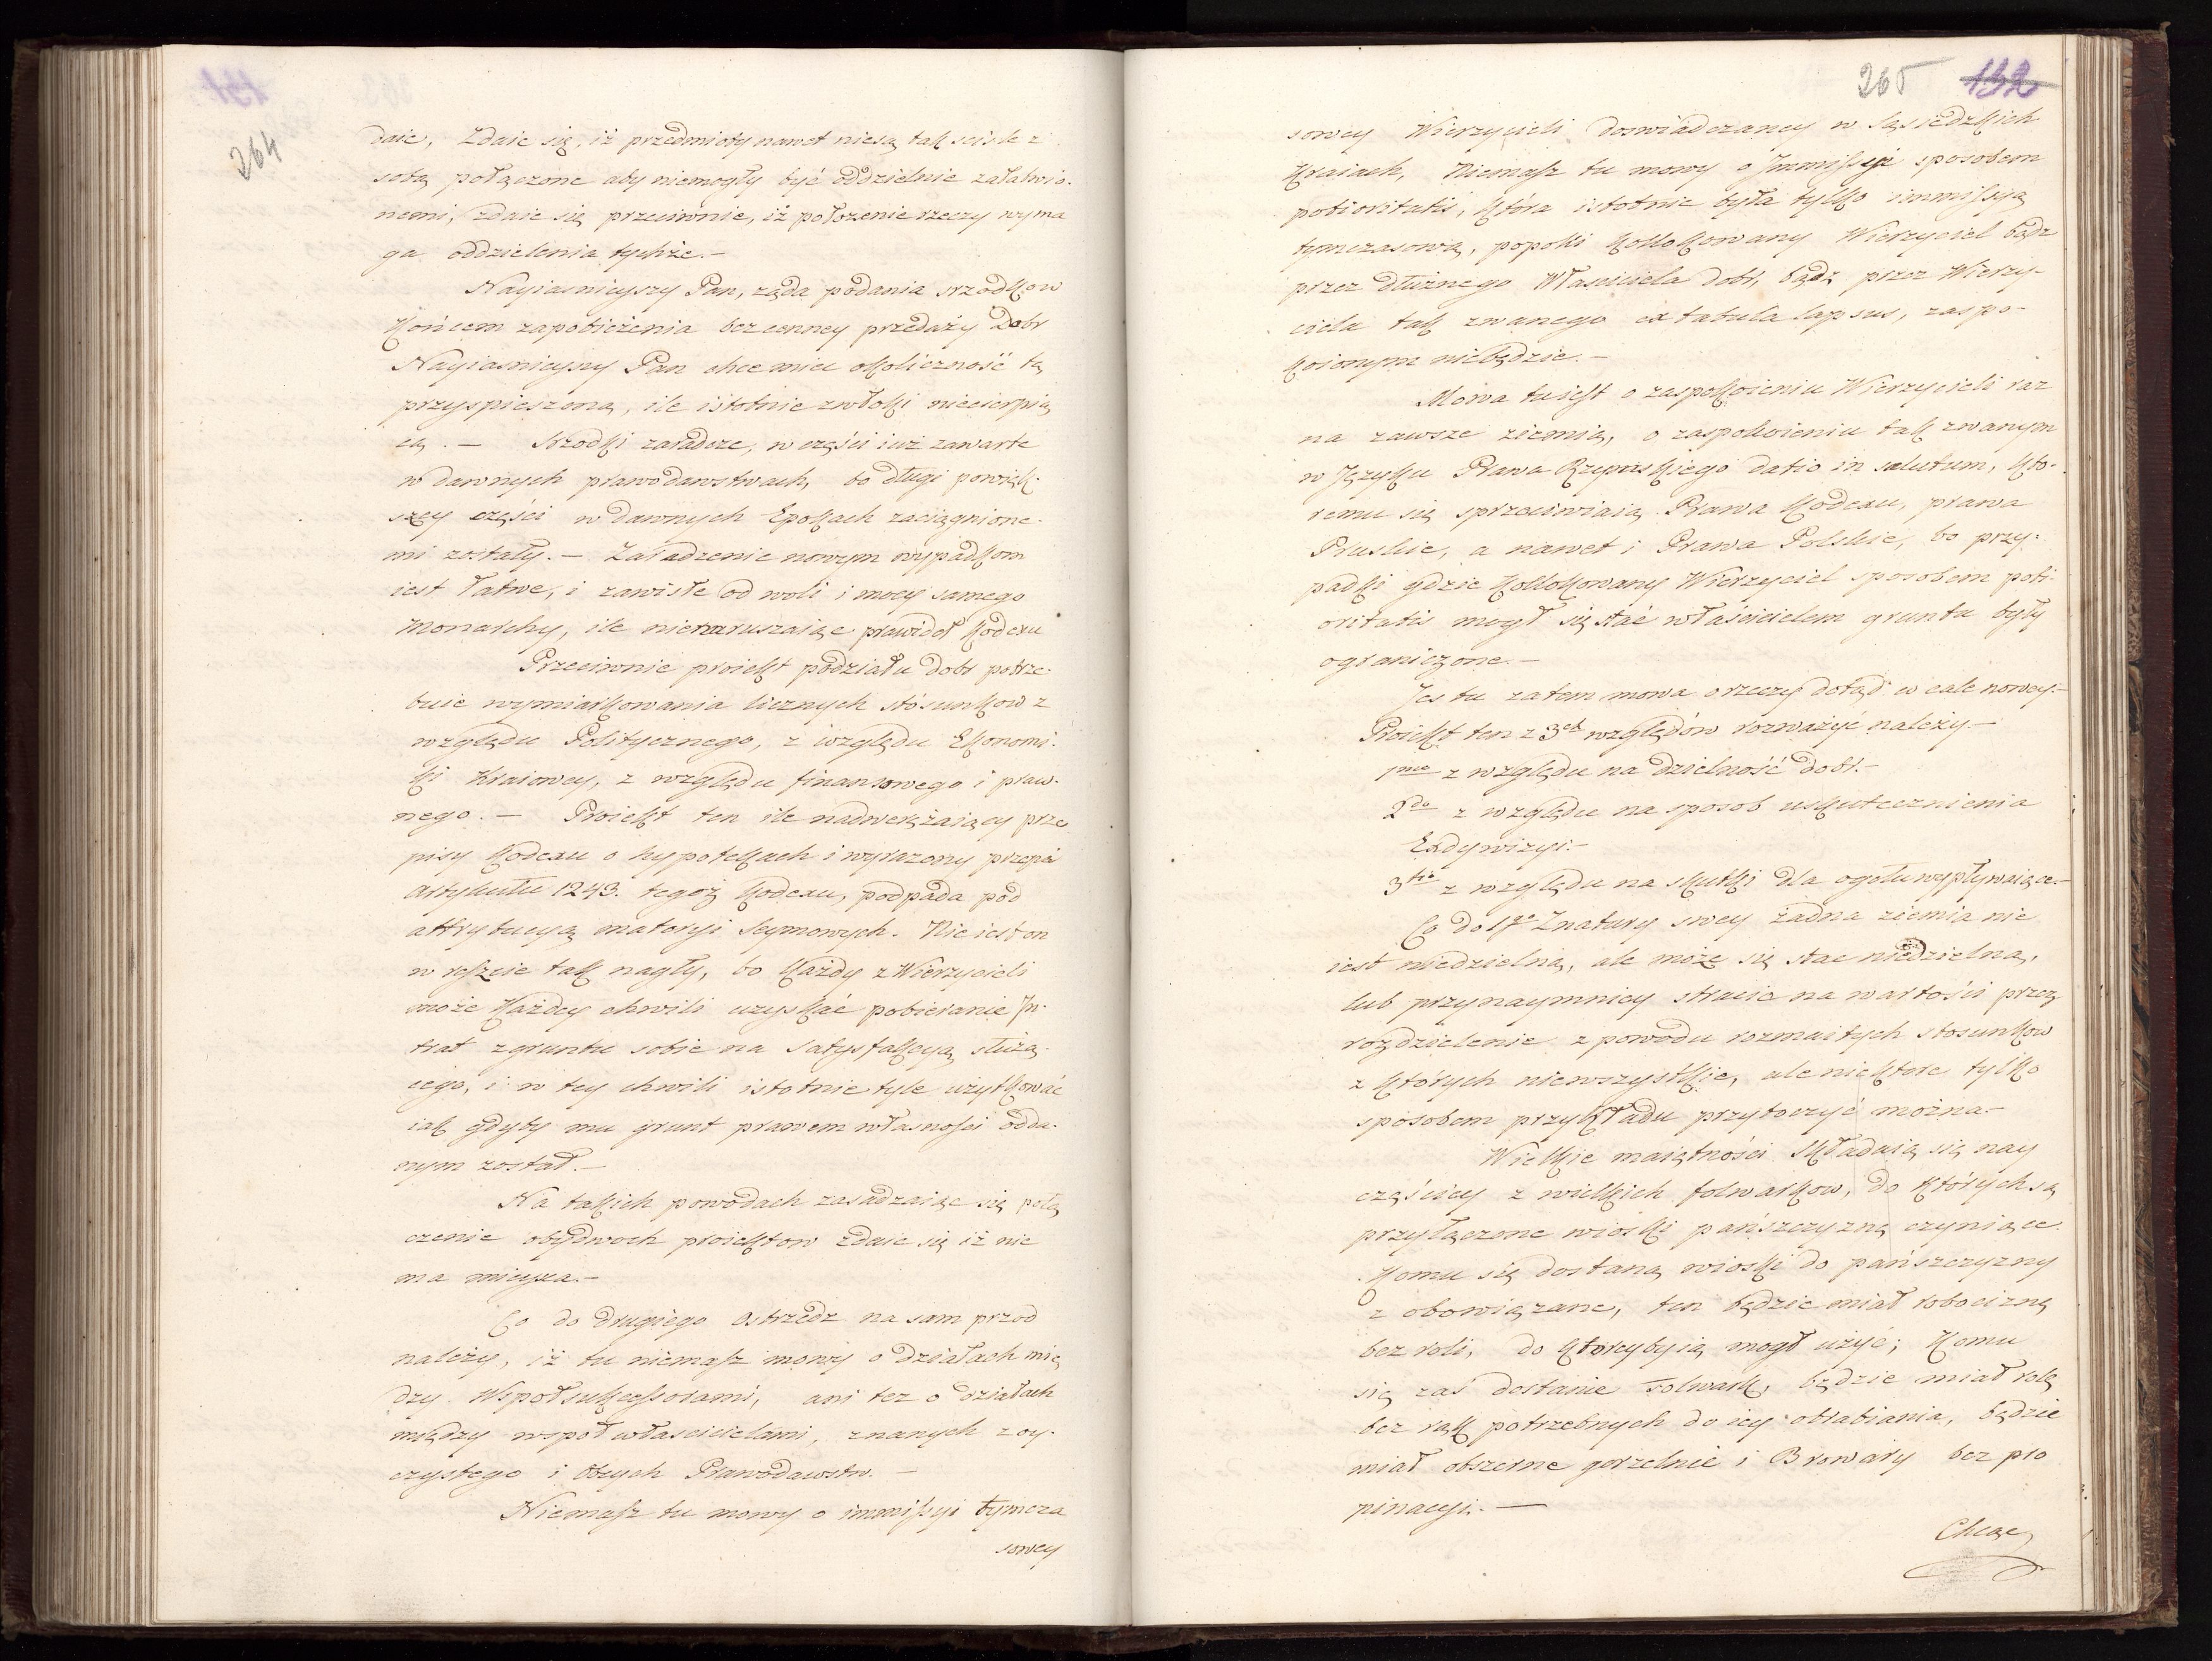 264
daie, Zdaie się, iż przedmioty nawet niesą tak sciśle z
sobą połączone aby niemogły być oddzielnie załatwio-
nemi, zdaie się przeciwnie, iż położenie rzeczy wyma
ga oddzielenia tychże.-
Nayiasnieyszy Pan, żąda podania srzodkow
końcem zapobieżenia bezcenney przedaży Dobr
Nayiasnieyszy Pan chce mieć okoliczność tę
przyspieszoną, ile istotnie zwłoki niecierpią
cą. - Srzodki zaradcze, w części iuż zawarte
w dawnych prawodawstwach, bo długi powięk-
szey części w dawnych Epokach zaciągnione-
mi zostały. - Zaradzenie nowym wypadkom
iest łatwe, i zawisłe od woli i mocy samego
Monarchy, ile nienaruszaiąc prawideł kodexu
Przeciwnie proiekt podziału dobr potrze-
buie wymiarkowania licznych stosunkow z
względu Politycznego, z względu Ekonomi-
ki Kraiowey, z względu finansowego i praw-
nego. - Proiekt ten ile nadwerężaiący prze
pisy kodexu o hypotekach i wyrazony przepis
artykułu 1243. tegoż kodexu, podpada pod
attrybucyą materyi Seymowych. Nie iest on
w reszcie tak nagły, bo każdy z Wierzycieli
może każdey chwili uzyskać pobieranie In-
trat z gruntu sobie na satysfakcyą służą-
cego, i w tey chwili istotnie tyle użytkować
iak gdyby mu grunt prawem własności odda-
nym został.-
Na takich powodach zasadzaiąc się połą
czenie obydwoch proiektow zdaie się iż nie
ma mieysca.-
Co do drugiego ostrzedz na sam przod
należy, iż tu niemasz mowy o działach mię
dzy Wspołsukcessorami, ani tez o działach
między wspoł włascicielami, znanych z oy-
czystego i obcych Prawodawstw. -
Niemasz tu mowy o immissyi tymcza
sowey
265 132
sowey Wierzycieli doswiadczaney w sąsiedzkich
Kraiach, Niemasz tu mowy o Immissyi sposobem
potioritatis, która istotnie była tylko immissyą
tymczasową, popoki kollokowany Wierzyciel bądz
przez dłużnego Własciciela dobr, bądz przez Wierzy-
ciela tak zwanego ex tabula lapsus, zaspo-
koionym niebędzie. -
Mowa tu iest o zaspokoieniu Wierzycieli raz
na zawsze ziemią, o zaspokoieniu tak zwanym
w Języku Prawa Rzymskiego datio in solutum, kto-
remu się sprzeciwiaią Prawa kodexu, prawa
Pruskie, a nawet i Prawa Polskie, bo przy-
padki gdzie kollokowany Wierzyciel sposobem poti-
oritatis mogł się stać właścicielem gruntu były
ograniczone.-
Jes tu zatem mowa o rzeczy dotąd w cale nowey.-
Proiekt ten z 3ch względów rozważyć należy.-
1mo z względu na dzielność dobr.-
2do z względu na sposob uskutecznienia
Exdywizyi.-
3tio z względu na skutki dla ogołu wypływaiące.-
Co do 1go Z natury swey żadna ziemia nie
iest niedzielną, ale może się stac niedzielną,
lub przynaymniey stracic na wartości przez
rozdzielenie z powodu rozmaitych stosunkow
z których niewszystkie, ale niektore tylko
sposobem przykładu przytoczyć można.-
Wielkie maiętności składaią się nay
częściey z wielkich folwarkow, do których są
przyłączone wioski pańszczyznę czyniące.
Komu się dostaną wioski do pańszczyzny
z obowiązane, ten będzie miał robociznę
bez roli, do ktoreyby ią mogł użyć; Komu
się zas dostanie Folwark, będzie miał rolę
bez rąk potrzebnych do iey obrabiania, będzie
miał obszerne gorzelnie i Browary bez pro
pinacyi. -
Chcąc